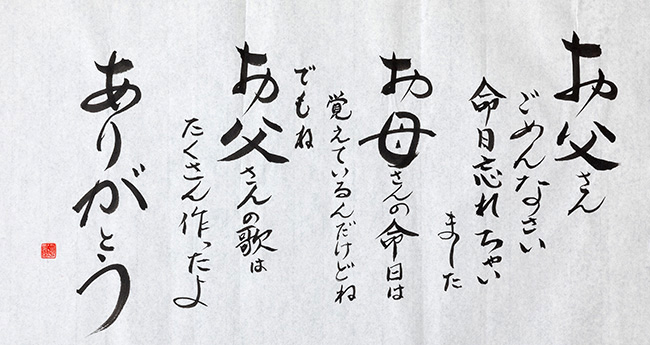 お父さん
ごめんなさい
命日忘れちゃい
ました
お母さんの命日は
覚えているんだけどね
でもね
お父さんの歌は
たくさん作ったよ
ありがとう